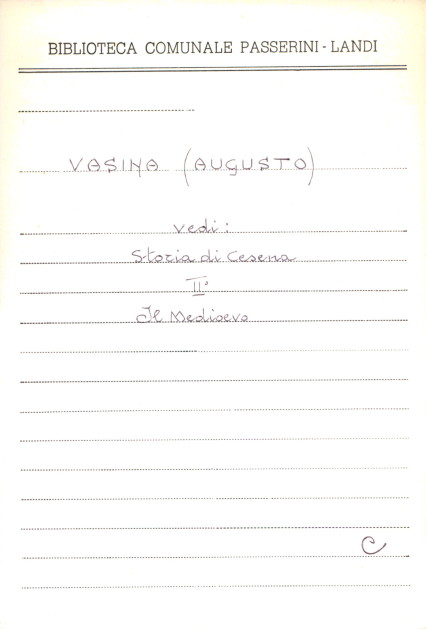 BIBLIOTECA COMUNALE PASSERINI-LANDI
VASINA (AUGUSTO)
vedi:
Storia di Cesena
II°
Il Medioevo
C